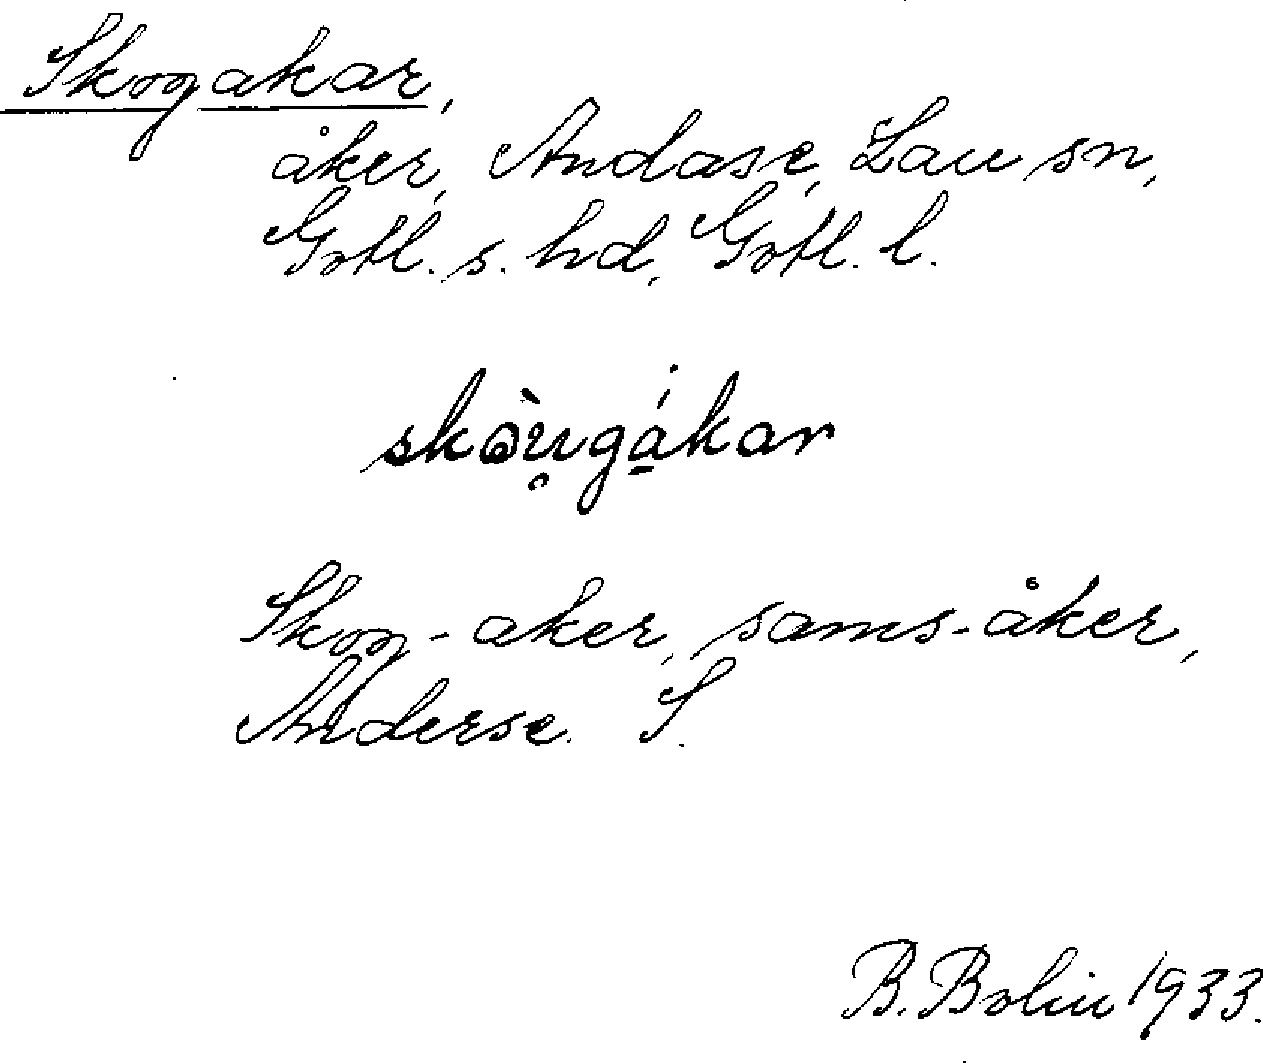 Skogakar,
åker, Andase, Lau sn,
Gotl. s. hd, Gotl. l.
skɷ̀u̯gá̠kar
Skog-aker, sams-åker,
Anderse. S.
B. Bolin 1933.